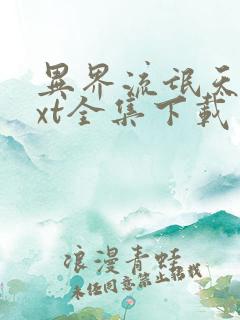 異界流氓天
xt全集下載
浪漫青蛙
未经同意禁止转载